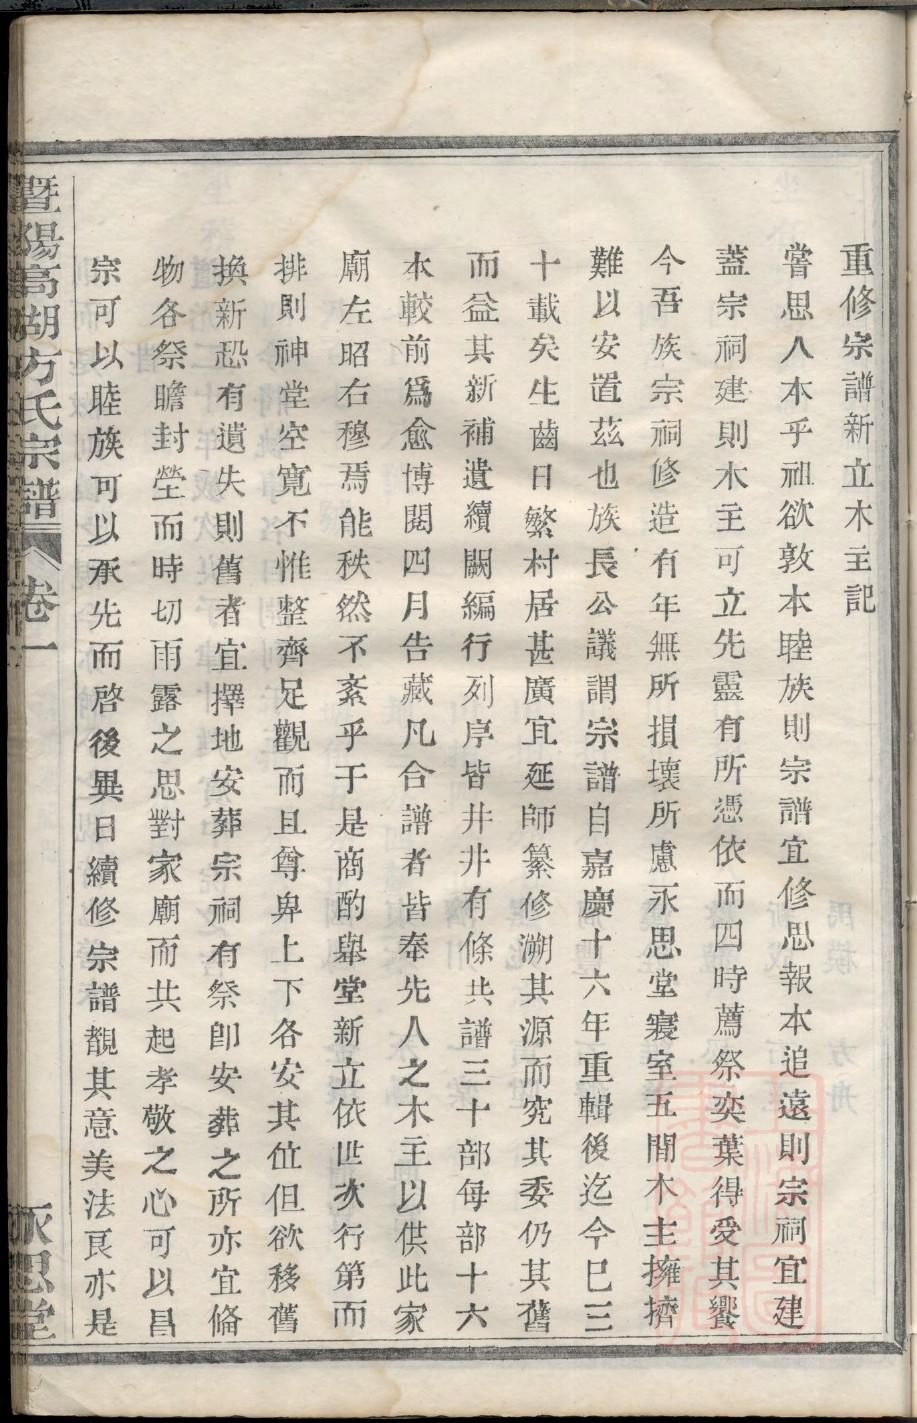 重修宗譜新立木主記
嘗思人本乎祖欲敦本睦族則宗譜宜修思報本追遠則宗祠宜建
蓋宗祠建則木主可立先靈有所憑依而四時薦祭奕葉得受其饗
今吾族宗祠修造有年無所損壞所慮永思堂寢室五間木主擁擠
難以安置茲也族長公議謂宗譜自嘉慶十六年重輯後迄今巳三
十載矣生齒日繁村居甚廣宜延師纂修溯其源而究其委仍其舊
而益其新補遺續闕編行列序皆井井有條共譜三十部每部十六
本較前爲愈博閱四月告藏凡合譜者皆奉先人之木主以供此家
廟左昭右穆焉能秩然不紊乎于是商酌舉堂新立依世次行第而
排則神堂空寬不惟整齊足觀而且尊卑上下各安其位但欲移舊
換新恐有遺失則舊者宜擇地安葬宗祠有祭卽安葬之所亦宜偹
物各祭瞻封塋而時切雨露之思對家廟而共起孝敬之心可以昌
宗可以睦族可以承先而啓後異日續修宗譜覩其意美法良亦是
暨陽高湖方氏宗譜 卷一 永思堂